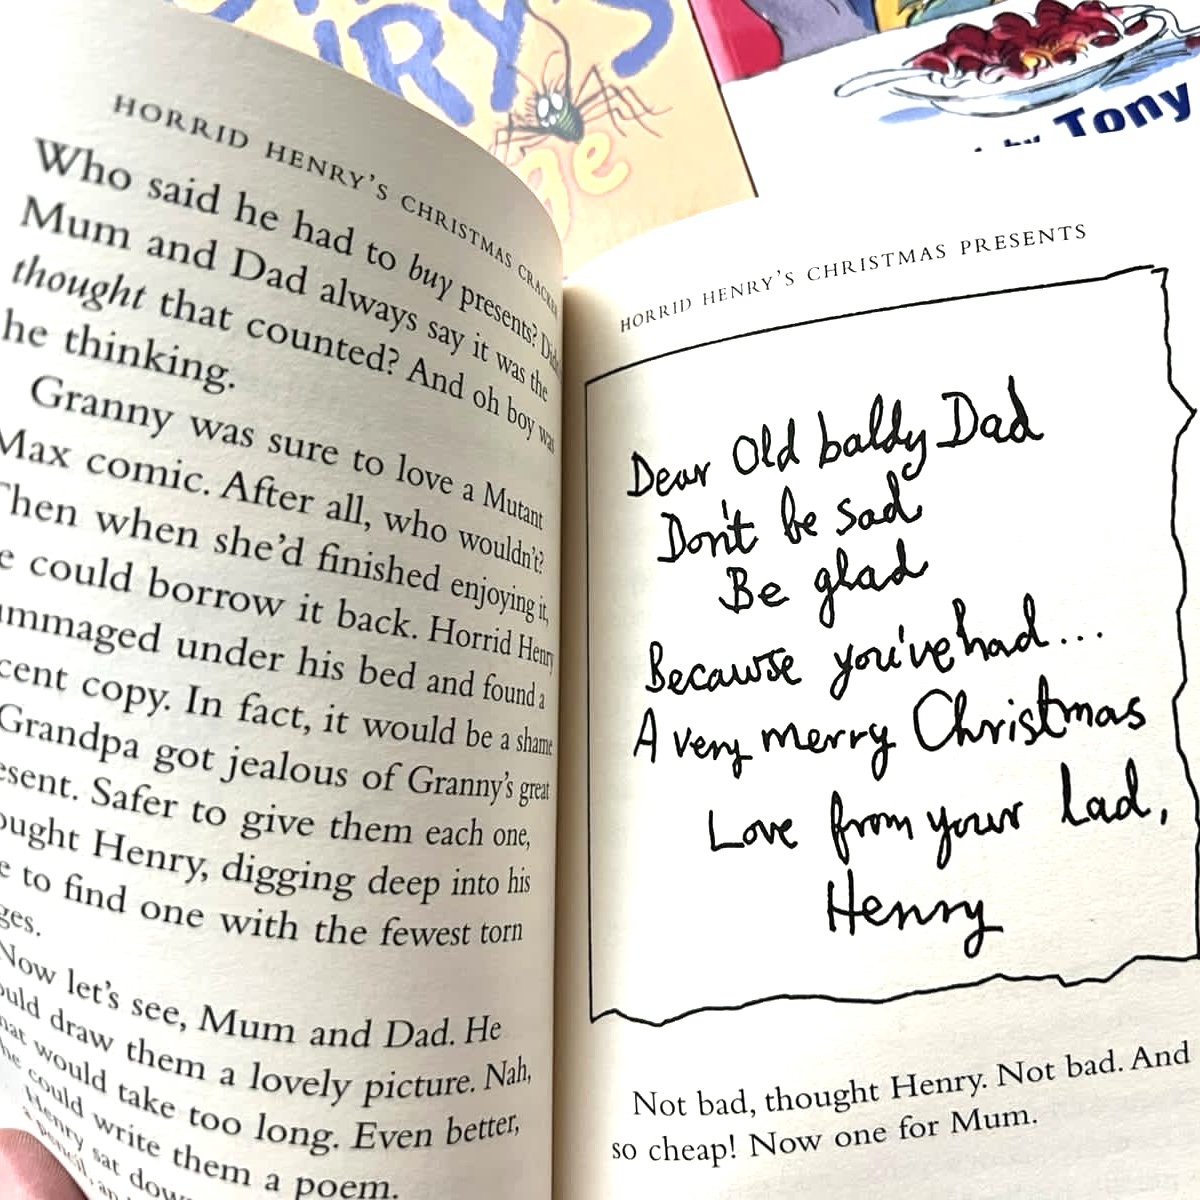 RY'S
ge
by Tony
HORRID HENRY'S CHRISTMAS CRACKER
Who said he had to buy presents?
Mum and Dad always say it was the
thought that counted? And oh boy was
he thinking.
Granny was sure to love a Mutant
Max comic. After all, who wouldn't?
Then when she'd finished enjoying it,
could borrow it back. Horrid Henry
under his bed and found a
copy. In fact, it would be a shame
Grandpa got jealous of Granny's great
Safer to give them each one,
Henry, digging deep into his
to find one with the fewest torn
Now let's see, Mum and Dad. He
draw them a lovely picture. Nah,
would take too long. Even better,
he could write them a poem.
Henry sat down
HORRID HENRY'S CHRISTMAS PRESENTS
Dear Old baldy Dad
Don't be sad
Be glad
Because you've had...
A very merry Christmas
Love from your lad,
Henry
Not bad, thought Henry. Not bad. And
so cheap! Now one for Mum.